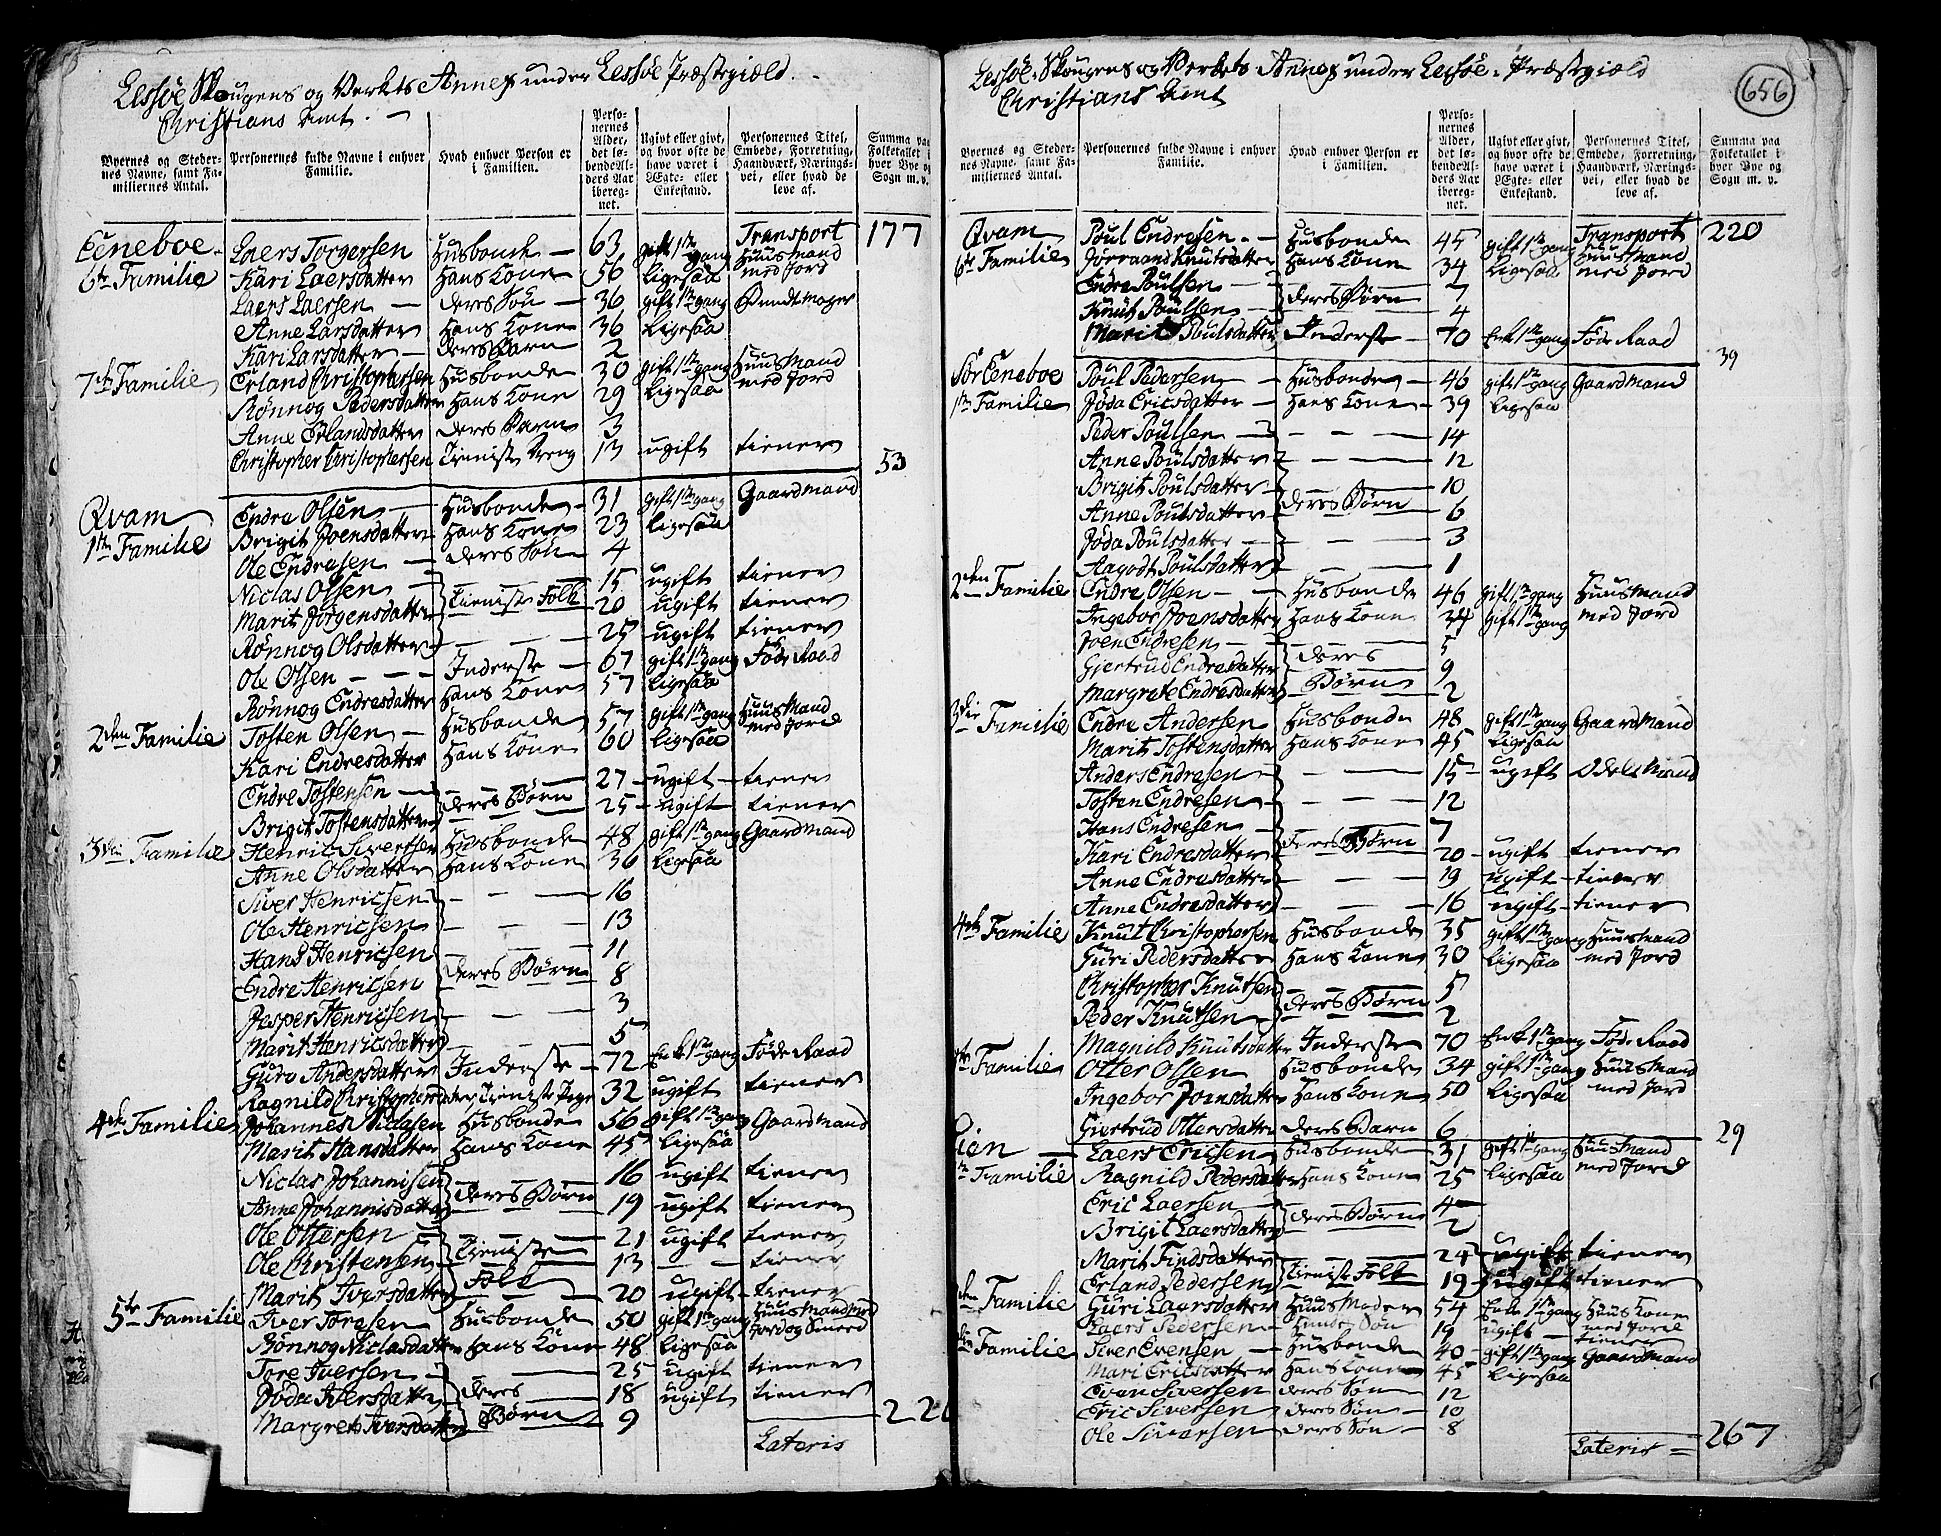 Lessøe Skougens og Verkets Annex under Lessøe Præstegield.
Christians Amt.
Byernes og Stedernes Navne, samt Familiernes Antal.
Personernes fulde Navne i enhver Familie.
Hvad enhver Person er i Familien.
Personernes Alder, det løbende Alders Aar iberegnet.
Ugivt eller givt, og hvor ofte de have været i Ægte- eller Enkestand.
Personernes Titel, Embede, Forretning, Haandværk, Næringsvei, eller hvad de leve af.
Summa paa Folketallet i hver Bye og Sogn m. v.
Transport 177
Eeneboe Laers Torgersen Husbonde 63 gift 1te gang Huusmand
6te Familie Kari Laersdatter Hans Kone 56 ligesaa med Jord
Laers Laersen deres Søn 36 gift 1te gang Bundtmager
Anne Larsdatter Hans Kone 36 ligesaa
Kari Larsdatter deres Barn 2
7de Familie Erland Christophersen Husbonde 30 gift 1te gang Huusmand
Rønnog Pedersdatter Hans Kone 29 ligesaa med Jord
Anne Erlandsdatter deres Barn 3
Christopher Christophersen Tieniste Dreng 13 ugift tiener
53
Qvam Endre Olsen Husbonde 31 gift 1te gang Gaardmand
1te Familie Brigit Joensdatter Hans Kone 23 ligesaa
Ole Endresen deres Søn 4
Niclas Olsen 15 ugift tiener
Marit Jørgensdatter Tieniste Folk 20 ugift tiener
Rønnog Olsdatter 25 ugift tiener
Ole Olsen Inderste 67 gift 1te gang Føde Raad
Rønnog Endresdatter Hans Kone 57 ligesaa
2den Familie Tosten Olsen Husbonde 57 gift 1te gang Huusmand
Kari Endresdatter Hans Kone 60 ligesaa med Jord
Endre Tostensen 27 ugift tiener
Brigit Tostensdatter deres Børn 25 ugift tiener
3die Familie Henric Sivertsen Husbonde 48 gift 1te gang Gaardmand
Anne Olsdatter Hans Kone 36 ligesaa
Siver Henricsen 16
Ole Henricsen 13
Hans Henricsen 11
Endre Henricsen deres Børn 8
Jesper Henricsen 3
Marit Henricsdatter 5
Guro Andersdatter Inderste 72 Enke 1te gang Føde Raad
Ragnild Christophersdatter Tieniste Pige 32 ugift tiener
4de Familie Johannes Niclasen Husbonde 56 gift 1te gang Gaardmand
Marit Hansdatter Hans Kone 45 ligesaa
Niclas Johannisen 16 ugift tiener
Anne Johannisdatter deres Børn 19 ugift tiener
Ole Ottersen 21 ugift tiener
Ole Christensen Tieniste 13 — tiener
Marit Iversdatter Folk 20 ugift tiener
5te Familie Iver Toresen Husbonde 50 gift 1te gang Huusmand med Jord og Smeed
Rønnog Niclasdatter Hans Kone 48 ligesaa
Tore Iversen 25 ugift tiener
Jøda Iversdatter deres 18 ugift tiener
Margrete Iversdatter Børn 9
Lateris 220
Lessøe Skougens og Verkets Annex under Lessøe Præstegield
Christians Amt
656
Byernes og Stedernes Navne, samt Familiernes Antal.
Personernes fulde Navne i enhver Familie.
Hvad enhver Person er i Familien.
Personernes Alder, det løbende Alders Aar iberegnet.
Ugivt eller givt, og hvor ofte de have været i Ægte- eller Enkestand.
Personernes Titel, Embede, Forretning, Haandværk, Næringsvei, eller hvad de leve af.
Summa paa Folketallet i hver Bye og Sogn m. v.
Transport 220
Qvam Poul Endresen Husbonde 45 gift 1te gang Huusmand
6te Familie Jørraand Knutsdatter Hans Kone 34 ligesaa med Jord
Endre Poulsen 7
Knut Poulsen deres Børn 4
Marit Poulsdatter Inderste 70 Enke 1te gang Føde Raad
39
Sør Eeneboe Poul Pedersen Husbonde 46 gift 1te gang Gaardmand
1te Familie Jøda Ericsdatter Hans Kone 39 ligesaa
Peder Poulsen 14
Anne Poulsdatter 12
Brigit Poulsdatter 10
Anne Poulsdatter deres Børn 6
Jøda Poulsdatter 3
Aagodt Poulsdatter 1
2den Familie Endre Olsen Husbonde 46 gift 1te gang Huusmand
Ingebor Joensdatter Hans Kone 34 gift 1te gang med Jord
Joen Endresen 5
Giertrud Endresdatter deres 9
Margrete Endresdatter Børn 2
3die Familie Endre Andersen Husbonde 48 gift 1te gang Gaardmand
Marit Tostensdatter Hans Kone 45 ligesaa
Anders Endresen 15 ugift Odelsmand
Tosten Endresen 12
Hans Endresen 7
Kari Endresdatter deres Børn 20 ugift tiener
Anne Endresdatter 19 ugift tiener
Anne Endresdatter 16 ugift tiener
4de Familie Knut Christophersen Husbonde 35 gift 1te gang Huusmand
Guri Pedersdatter Hans Kone 30 ligesaa med Jord
Christopher Knutsen 5
Peder Knutsen deres Børn 2
Magnild Knutsdatter Inderste 70 Enke 1te gang Føde Raad
5te Familie Otter Olsen Husbonde 34 gift 1te gang Huusmand
Ingebor Joensdatter Hans Kone 50 ligesaa med Jord
Giertrud Ottersdatter deres Barn 6
29
Lien Laers Ericsen Husbonde 31 gift 1te gang Huusmand
1te Familie Ragnild Pedersdatter Hans Kone 25 ligesaa med Jord
Eric Laersen 4
Brigit Laersdatter deres Børn 2
Marit Findsdatter 24 ugift tiener
Erland Pedersen Tieniste Folk 19 ugift tiener
2den Familie Guri Laersdatter Huusmoder 54 Enke 1te gang Huus Kone med Jord
Laers Pedersen Hendes Søn 19 ugift tiener
3die Familie Siver Evensen Husbonde 40 gift 1te gang Gaardmand
Mari Ericsdatter Hans Kone 45 ligesaa
Evan Siversen deres Søn 12
Eric Siversen deres Søn 10
Ole Siversen deres Søn 8
Lateris 267